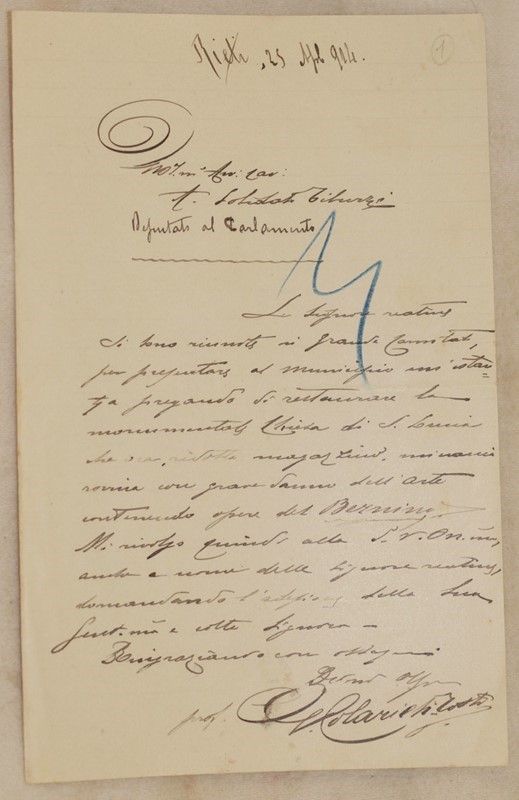 Rieti, 25 Apl 914.
1
Ill.mo Avv. Cav:
A. Solidati Tiburzi
Deputato al Parlamento
Le Signore reatine
si sono riunite in grande Comitato,
per presentare al municipio un'istan-
za pregando di restaurare la
monumentale Chiesa di S. Lucia
che ora, ridotta magazzino, minaccia
rovina con grave danno dell'arte
contenendo opere del Bernino.
Mi rivolgo quindi alla S. V. On.ma,
anche a nome delle Signore reatine,
domandando l'adesione della Sua
Gent.ma e colta Signora
Ringraziando con ossequi
Devmo
prof.
Colarieti Tosti